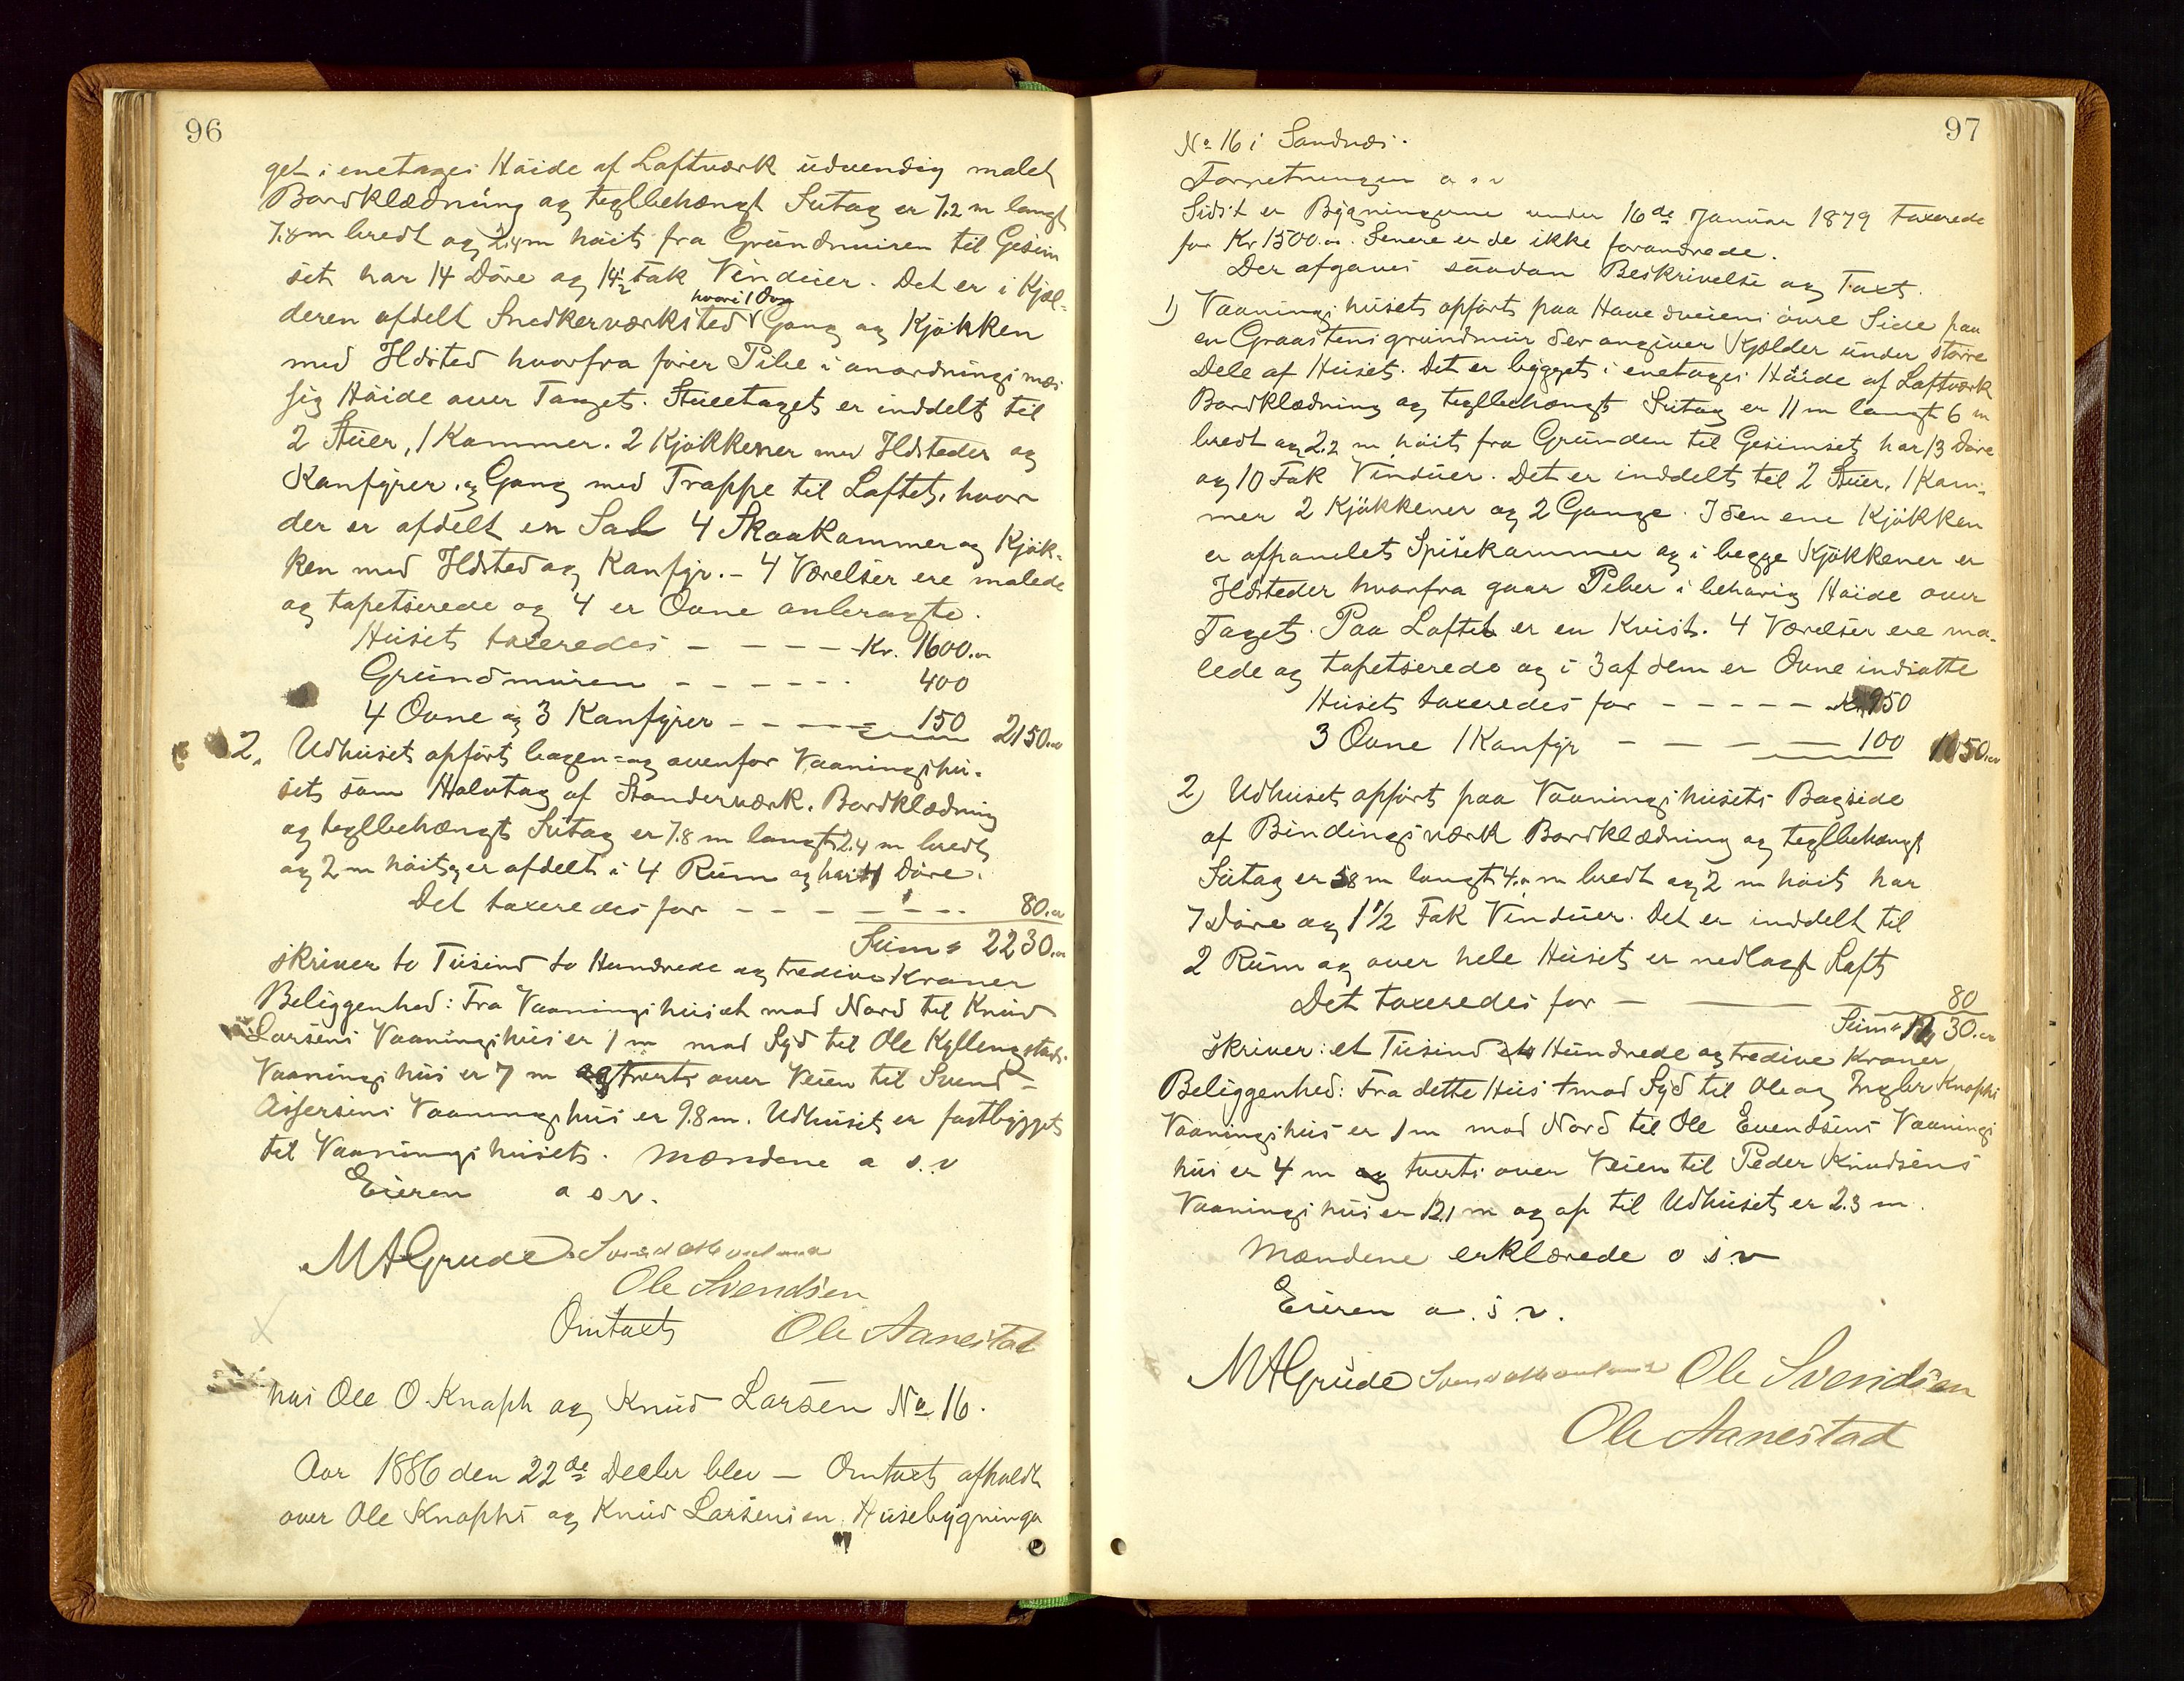 96
get i enetages Høide af Laftværk udvendig malet
Bordklædning og teglbehængt Sutag er 7.2 m langt
7.8 m bredt og 2.4 m høit fra Grundmuren til Gesim
set har 14 Døre og 14½ Fak Vinduer. Det er i Kjæl-
deren afdelt Snedkerværksted hvori 1 Ovn Gang og Kjøkken
med Ildsted hvorfra fører Pibe i anordningsmæs
sig Høide over Taget. Stueetaget er inddelt til
2 Stuer, 1 Kammer. 2 Kjøkkener med Ildsteder og
Komfyrer. og Gang med Trappe til Loftet, hvor
der er afdelt en Sal 4 Skraakammer og Kjøk-
ken med Ildsted og Komfyr. - 4 Værelser ere malede
og tapetserede og 4 er Ovne anbragte.
Huset taxeredes - - - - Kr. 1600.00
Grundmuren - - - - - - 400
4 Ovne og 3 Komfyrer - - - - - 150 2150.00
2. Udhuset opført bagen- og ovenfor Vaaningshu-
set som Halvtag af Standerværk. Bordklædning
og teglbehængt Sutag er 7.8 m langt 2.4 m bredt
og 2 m høit, er afdelt i 4 Rum og har 4 Døre.
Det taxeredes for - - - - - - 80.00
Sum 2230.00
skriver to Tusind to Hundrede og tredive Kroner
Beliggenhed: Fra Vaaningshuset mod Nord til Knud
Larsens Vaaningshus er 1 m mod Syd til Ole Kyllingstads
Vaaningshus er 7 m og tverts over Veien til Svend
Assersens Vaaningshus er 9.8 m. Udhuset er fastbygget
til Vaaningshuset. Mændene o s. v
Eieren o s v.
M A Grude Svend
Ole Svendsen
Omtaxt Ole Aanestad
hos Ole O. Knaph og Knud Larsen No 16.
Aar 1886 den 22de Decbr blev - Omtaxt afholdt
over Ole Knaphs og Knud Larsens en Husebygninga
97
No 16 i Sandnæs.
Forretningen o s v
Sidst er Bygningerne under 16de Januar 1879 taxerede
for Kr 1500.00. Senere er de ikke forandrede.
Der afgaves saadan Beskrivelse og Taxt.
1) Vaaningshuset opført paa Hovedveiens øvre Side paa
en Graastensgrundmur der angiver Kjelder under større
Dele af Huset. Det er bygget i enetages Høide af Laftværk
Bordklædning og teglbehængt Sutag er 11 m langt 6 m
bredt og 2.2 m høit fra Grunden til Gesimset har 13 Døre
og 10 Fak Vinduer. Det er inddelt til 2 Stuer, 1 Kam-
mer 2 Kjøkkener og 2 Gange. I den ene Kjøkken
er afpanelet Spisekammer og i begge Kjøkkener er
Ildsteder hvorfra gaar Piber i behørig Høide over
Taget. Paa Loftet er en Kvist. 4 Værelser ere ma-
lede og tapetserede og i 3 af dem er Ovne indsatte
Huset taxeredes for - - - - - Kr 950
3 Ovne 1 Komfyr - - - - 100 1050.00
2) Udhuset opført paa Vaaningshusets Bagside
af Bindingsværk Bordklædning og teglbehængt
Sutag er 8 m langt 4.0 m bredt og 2 m høit har
7 Døre og 1½ Fak Vinduer. Det er inddelt til
2 Rum og over hele Huset er nedlagt Loft
Det taxeredes for - - - 80
Sum 1130.00
Skriver: et Tusind et Hundrede og tredive Kroner
Beliggenhed: Fra dette Hus mod Syd til Ole og Ingbr Knaphs
Vaaningshus er 1 m mod Nord til Ole Evendsens Vaanings
hus er 4 m og tverts over Veien til Peder Knudsens
Vaaningshus er 12.1 m og op til Udhuset er 2.3 m.
Mændene erklærede o s. v
Eieren o. s. v.
M A Grude Svend Ole Svendsen
Ole Aanestad